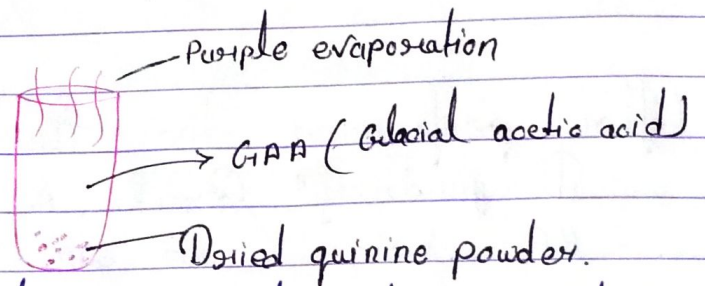 Purple evaporation
GAA (Glacial acetic acid)
Dried quinine powder.